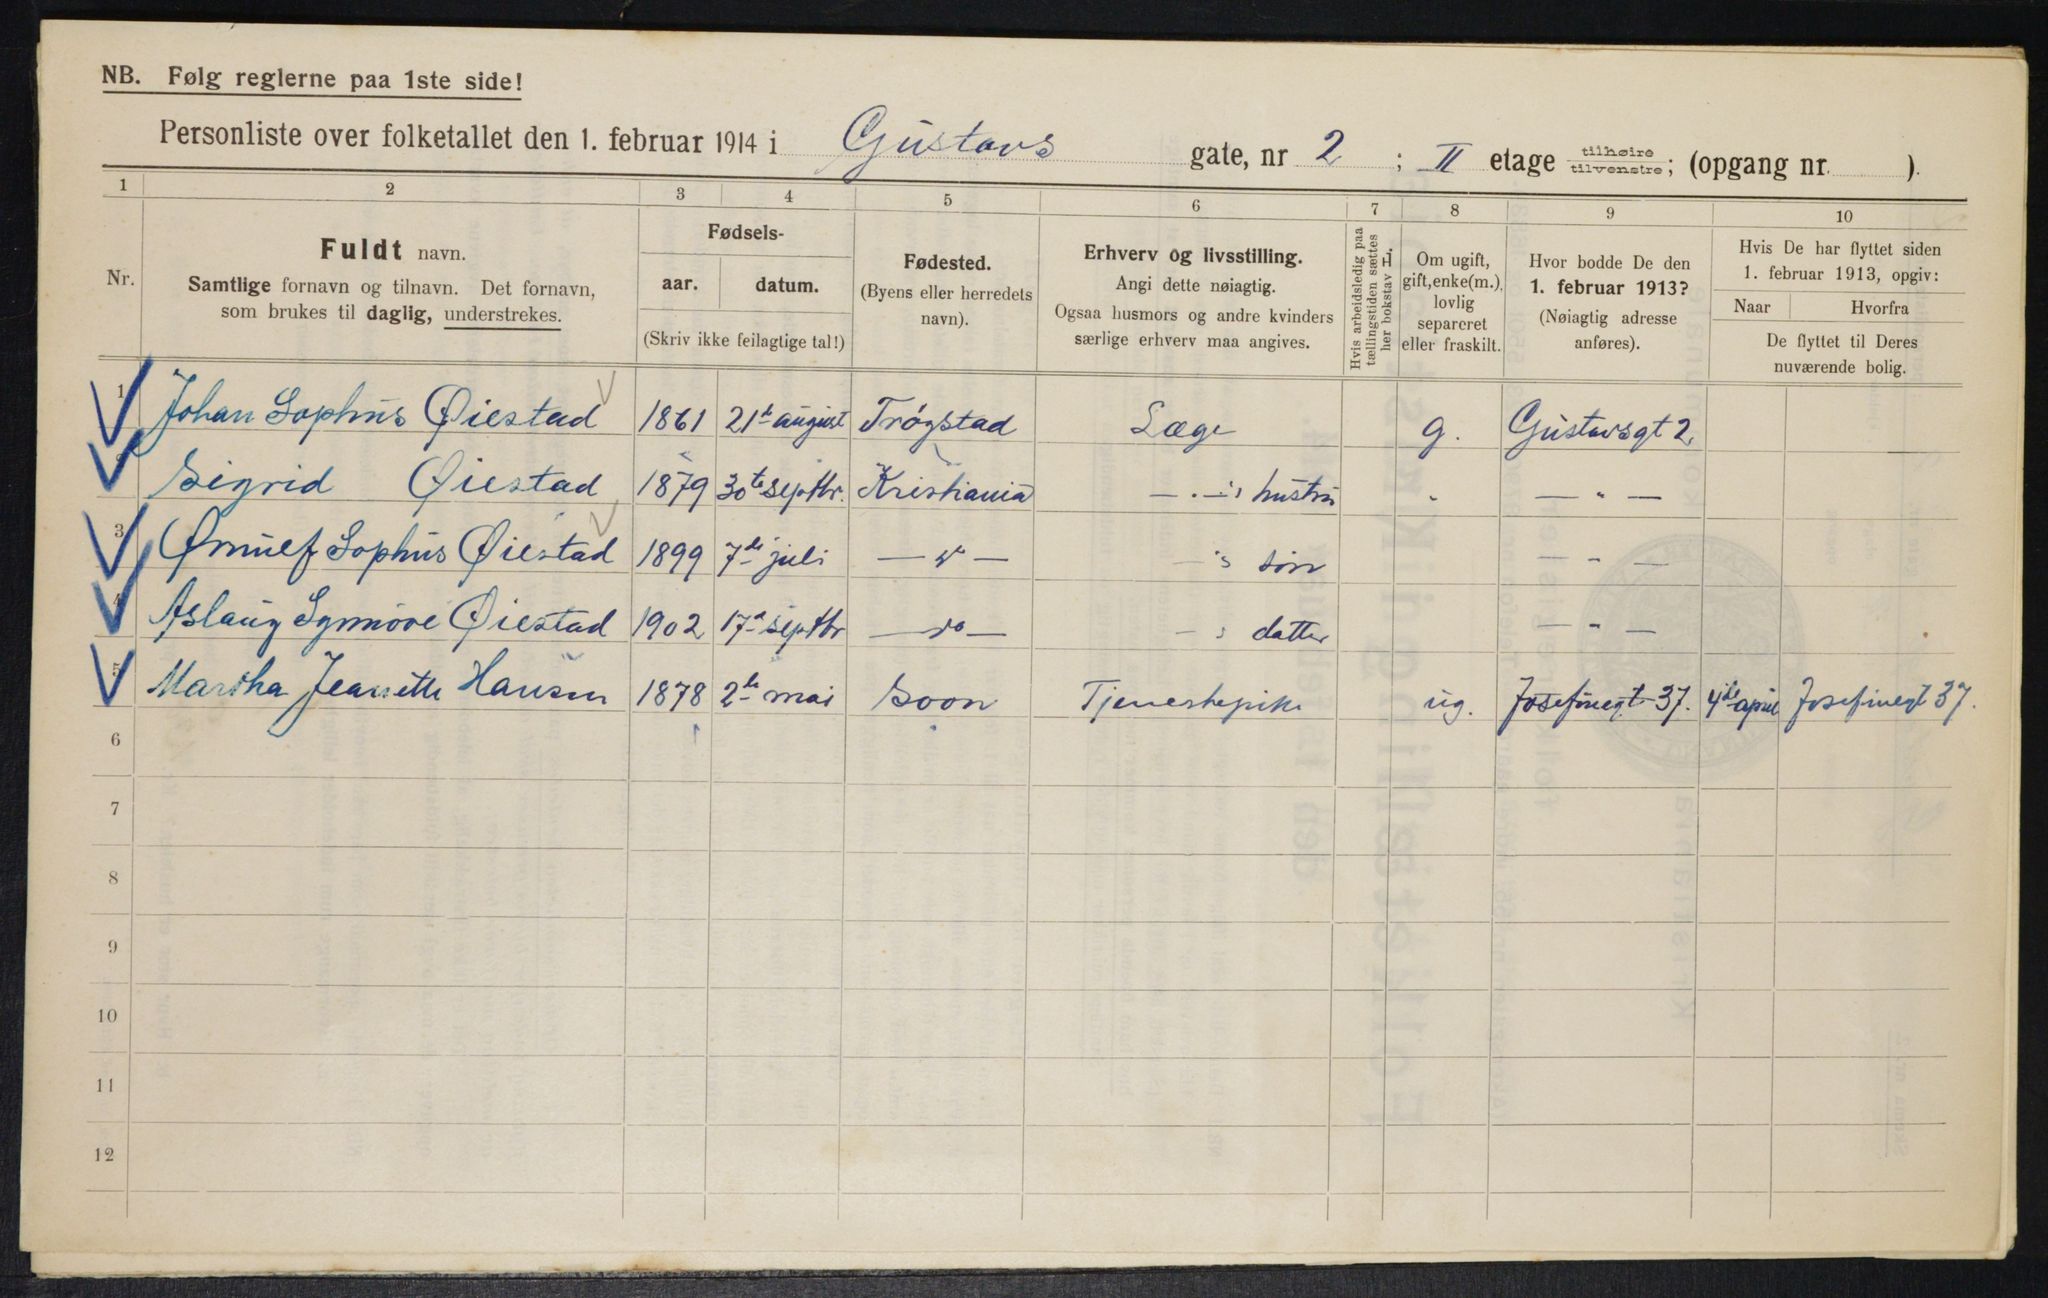 NB. Følg reglerne paa 1ste side!
Personliste over folketallet den 1. februar 1914 i Gustavs gate, nr 2 ; II etage tilhøire tilvenstre; (opgang nr. ).
1 2 3 4 5 6 7 8 9 10
Nr.
Fuldt navn.
Samtlige fornavn og tilnavn. Det fornavn,
som brukes til daglig, understrekes.
Fødsels-
aar. datum.
(Skriv ikke feilagtige tal!)
Fødested.
(Byens eller herredets
navn).
Erhverv og livsstilling.
Angi dette nøiagtig.
Ogsaa husmors og andre kvinders
særlige erhverv maa angives.
Hvis arbeidsledig paa
tællingstiden sættes
her bokstav L.
Om ugift,
gift, enke(m.),
lovlig
separeret
eller fraskilt.
Hvor bodde De den
1. februar 1913?
(Nøiagtig adresse
anføres).
Hvis De har flyttet siden
1. februar 1913, opgiv:
Naar Hvorfra
De flyttet til Deres
nuværende bolig.
1 Johan Sophus Øiestad 1861 21de august Trøgstad Læge g. Gustavsgt 2.
2 Sigrid Øiestad 1879 30te septbr. Kristiania — " — 's hustru " — " —
3 Ørnulf Sophus Øiestad 1899 7de juli — " — — 's søn — " —
4 Aslaug Synnøve Øiestad 1902 17d septbr — " — — 's datter — " —
5 Martha Jeanette Hansen 1878 2de mai Soon Tjenestepike ug. Josefinegt 37. 4de april Josefinegt 37.
6
7
8
9
10
11
12